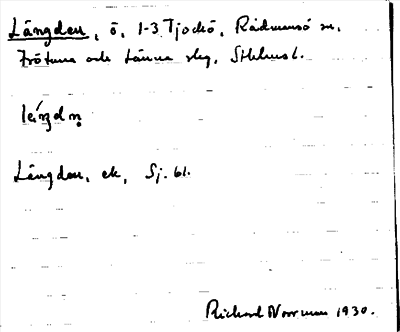 Långden, ö, 1-3 Tjockö, Rådmansö sn,
Frötuna och Länna slg, Sthlms l.
Långden, ek, Sj. bl.
Richard Norrman 1930.